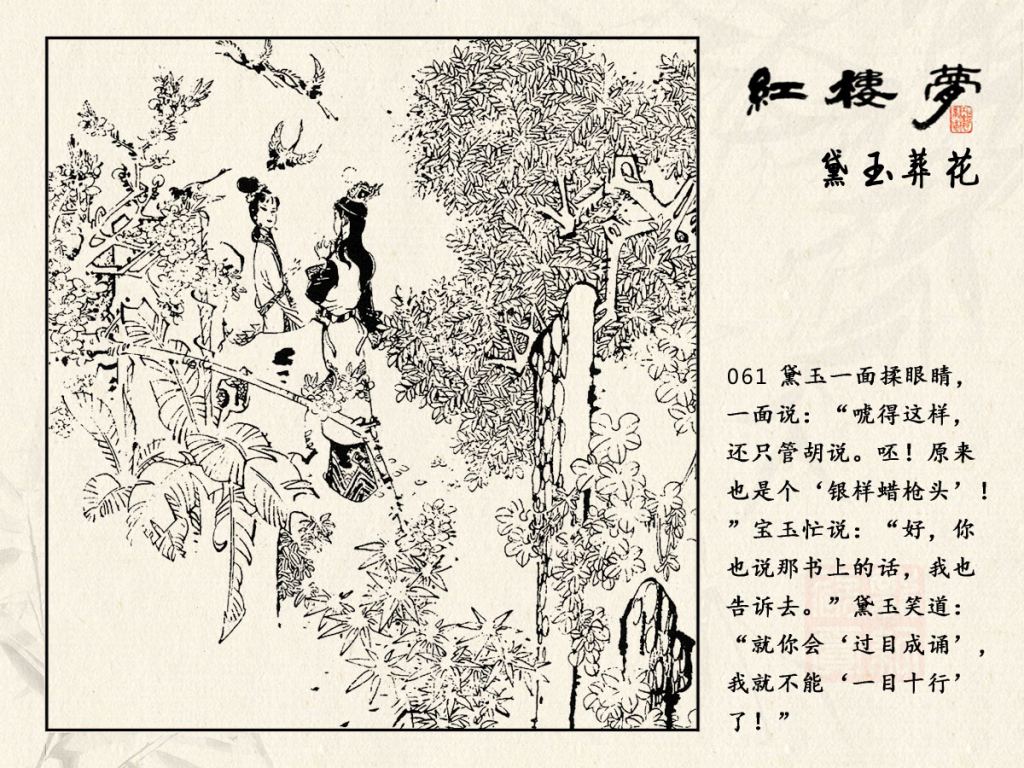 紅樓夢
黛玉葬花
061 黛玉一面揉眼睛，
一面说：“唬得这样，
还只管胡说。呸！原来
也是个‘银样蜡枪头’！
”宝玉忙说：“好，你
也说那书上的话，我也
告诉去。”黛玉笑道：
“就你会‘过目成诵’，
我就不能‘一目十行’
了！”